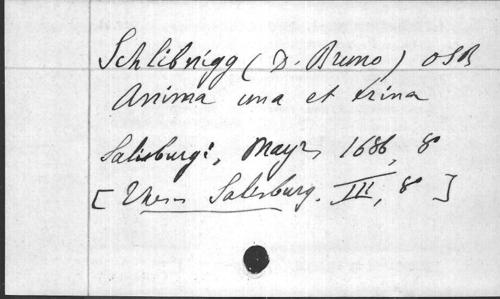 Schlibnigg (D. Bruno) OSB
Anima una et trina
Salisburgi, Mayr, 1686, 8
[Thes. Salisburg. III, 8]